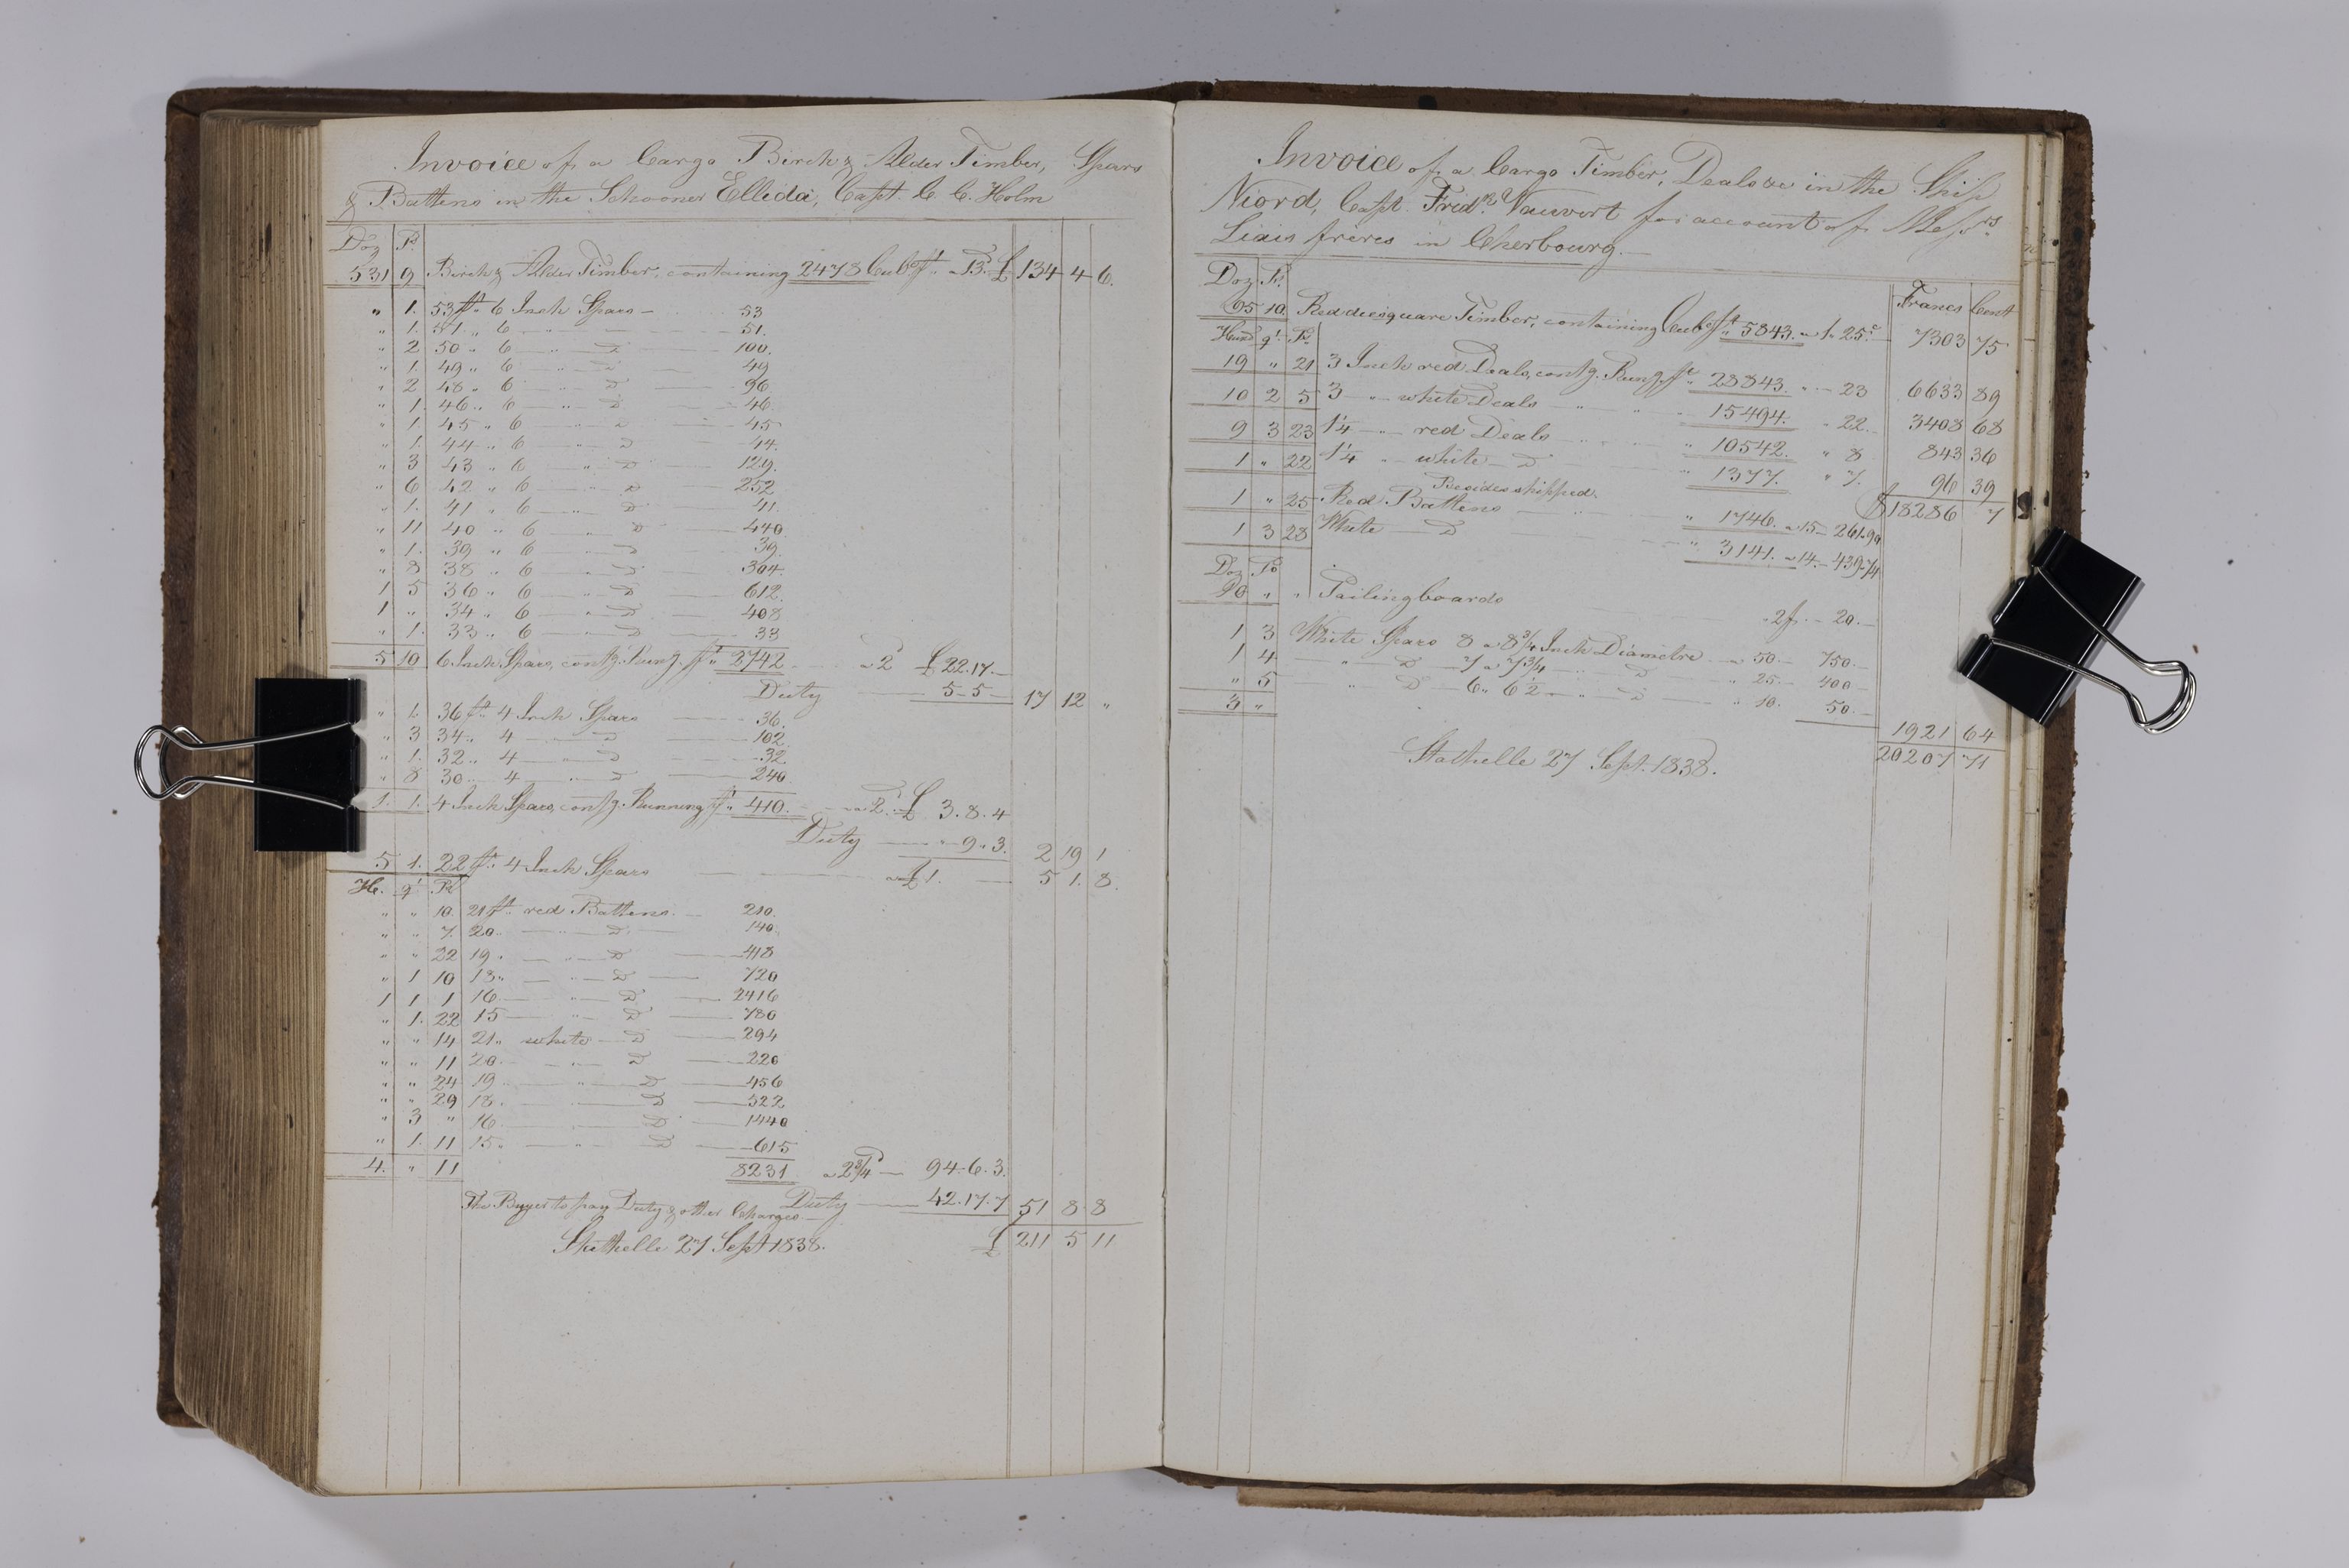 Invoice of a Cargo Birch & Alder Timber, Spars
& Battens in the Schooner Ellida, Capt. C. C. Holm
Doz P.
531 9 Birch & Alder Timber, containing 2478 Cub ft. a 13 £ 134 4 6.
" 1. 53 ft. 6 Inch Spars — 53
" 1. 51 " 6 — " — 51.
" 2 50 " 6 — " D — 100.
" 1. 49 " 6 — " D — 49
" 2 48 " 6 — " D — 96
" 1. 46 " 6 — " D — 46.
" 1. 45 " 6 — " D — 45
" 1. 44 " 6 — " D — 44.
" 3 43 " 6 — " D — 129.
" 6 42 " 6 — " D — 252
" 1. 41 " 6 — " D — 41.
" 11 40 " 6 — " D — 440
" 1. 39 " 6 — " D — 39.
" 8 38 " 6 — " D — 304.
1 5 36 " 6 — " D — 612.
1 " 34 " 6 — " D — 408
" 1. 33 " 6 — " D — 33
5 10 6 Inch Spars, contg. Rung. ft. 2742 — a 2 £ 22.17 —
Duty — 5-5 — 17 12 "
" 1. 36 ft. 4 Inch Spars — 36.
" 3 34 " 4 — " D — 102
" 1. 32 " 4 — " D — 32
" 8 30 " 4 — " D — 240
1. 1. 4 Inch Spars, contg. Running ft. 410. — a 2 £ 3.8.4
Duty — " 9. 3. 2 19 1
5 1. 22 ft. 4 Inch Spars — a £ 1. — 5 1. 8.
H. qr. P.
" " 10. 21 ft. red Battens. — 210.
" " 7. 20 " — " D — 140.
" " 22 19 " — " D — 418
" 1 10 18 " — " D — 720
1 1 1 16 — " D — 2416
" 1. 22 15 — " D — 780
" " 14 21 " white — D — 294
" " 11 20 — " D — 220
" " 24 19 — " D — 456
" " 29 18 — " D — 522
" 3 " 16 — " D — 1440
" 1. 11 15 " — " D — 615
4. " 11 8231 a 2 3/4 — 94.6.3.
The Buyer to pay Duty & other Charges — Duty — 42.17.7 51 8 8
Stathelle 27 Sept 1838. £ 211 5 11
Invoice of a Cargo Timber, Deals &c in the Ship
Niord, Capt. Fridr. Vauvert for account of Messrs
Liais frères in Cherbourg.
Doz P. Francs Cent
65 10 Red diesquare Timber, containing Cub ft. 5843. a 1. 25 c — 7303 75
Hund qr. P.
19 " 21 3 Inch red Deals, contg. Rung. ft. 28843. " — 23 6633 89
10 2 5 3 — " white Deals — " 15494. " 22. — 3408 68
9 3 23 1 1/4 — " red Deals — " 10542. " 8 843 36
1 " 22 1 1/4 " white — D — " 1377. " 7. 96 39
Besides shipped. 18286 7
1 " 25 Red Battens — " 1746. a 15 — 261.90
1 3 28 White — D — " 3141. a 14. — 439.74
Doz P.
10 " " Pailingboards — 2 f. — 20. —
1 3 White Spars 8 a 8 3/4 Inch Diametre — a 50 — 750. —
1 4 — " D — 7 a 7 3/4 — " D — " 25 — 400 —
" 5 — " D — 6 " 6 1/2 — " D — " 10. 50. —
3 " 1921 64
20207 71
Stathelle 27 Sept. 1838.